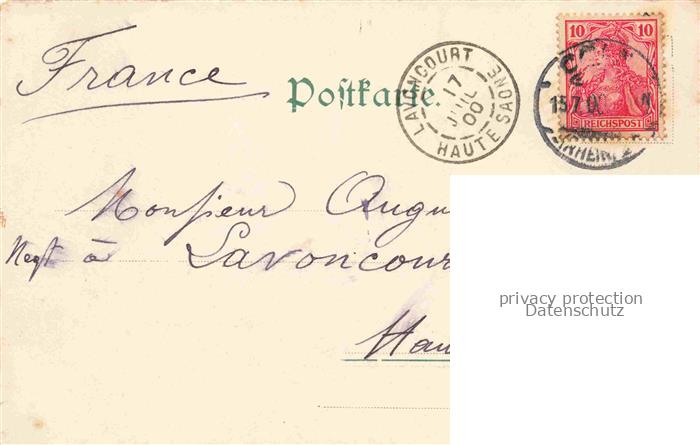 France
Postkarte.
LAVONCOURT HAUTE SAONE
17
JUIL
00
10 10
REICHSPOST
15.7.00
Monsieur Augu
Negt à Lavoncour
Hau
privacy protection
Datenschutz